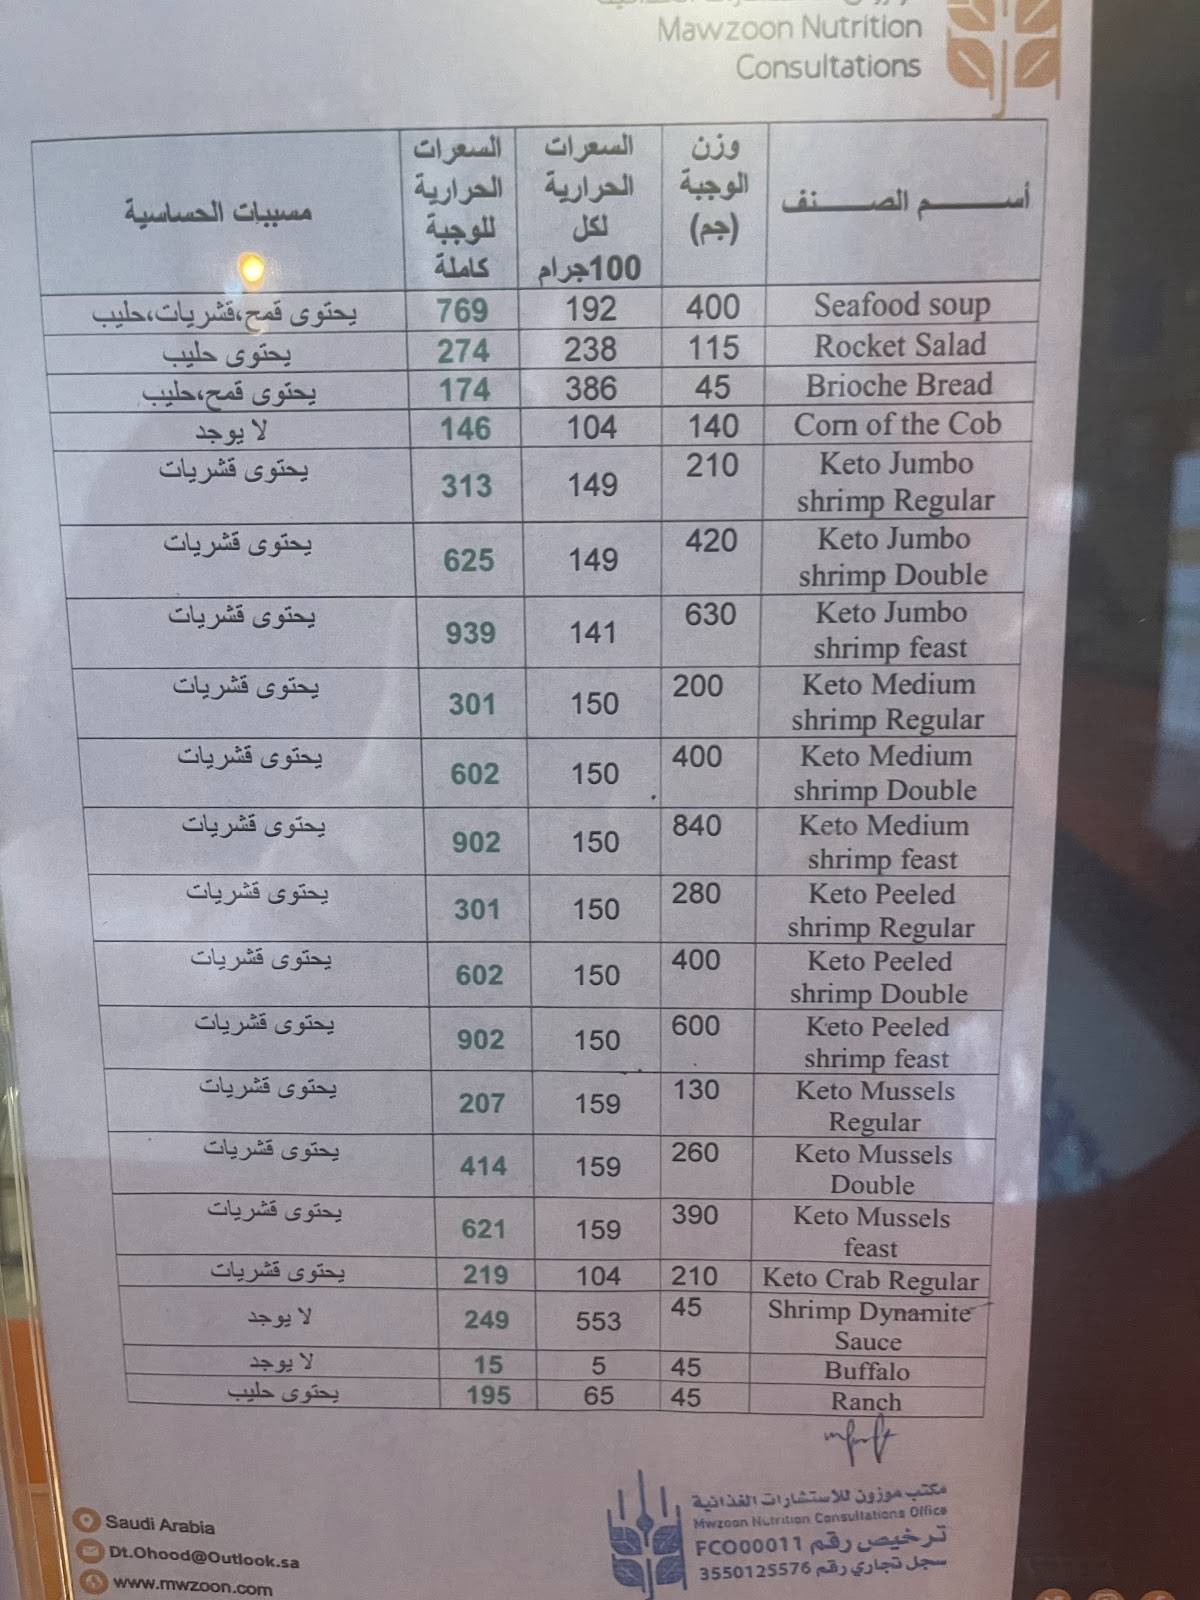 Mawzoon Nutrition
Consultations
أســـــم الصـــــنف | وزن الوجبة (جم) | السعرات الحرارية لكل 100جرام | السعرات الحرارية للوجبة كاملة | مسببات الحساسية
Seafood soup | 400 | 192 | 769 | يحتوى قمح،قشريات،حليب
Rocket Salad | 115 | 238 | 274 | يحتوى حليب
Brioche Bread | 45 | 386 | 174 | يحتوى قمح،حليب
Corn of the Cob | 140 | 104 | 146 | لا يوجد
Keto Jumbo shrimp Regular | 210 | 149 | 313 | يحتوى قشريات
Keto Jumbo shrimp Double | 420 | 149 | 625 | يحتوى قشريات
Keto Jumbo shrimp feast | 630 | 141 | 939 | يحتوى قشريات
Keto Medium shrimp Regular | 200 | 150 | 301 | يحتوى قشريات
Keto Medium shrimp Double | 400 | 150 | 602 | يحتوى قشريات
Keto Medium shrimp feast | 840 | 150 | 902 | يحتوى قشريات
Keto Peeled shrimp Regular | 280 | 150 | 301 | يحتوى قشريات
Keto Peeled shrimp Double | 400 | 150 | 602 | يحتوى قشريات
Keto Peeled shrimp feast | 600 | 150 | 902 | يحتوى قشريات
Keto Mussels Regular | 130 | 159 | 207 | يحتوى قشريات
Keto Mussels Double | 260 | 159 | 414 | يحتوى قشريات
Keto Mussels feast | 390 | 159 | 621 | يحتوى قشريات
Keto Crab Regular | 210 | 104 | 219 | يحتوى قشريات
Shrimp Dynamite Sauce | 45 | 553 | 249 | لا يوجد
Buffalo | 45 | 5 | 15 | لا يوجد
Ranch | 45 | 65 | 195 | يحتوى حليب
مكتب موزون للاستشارات الغذائية
Mwzoon Nutrition Consultations Office
ترخيص رقم FCO00011
سجل تجاري رقم 3550125576
Saudi Arabia
Dt.Ohood@Outlook.sa
www.mwzoon.com